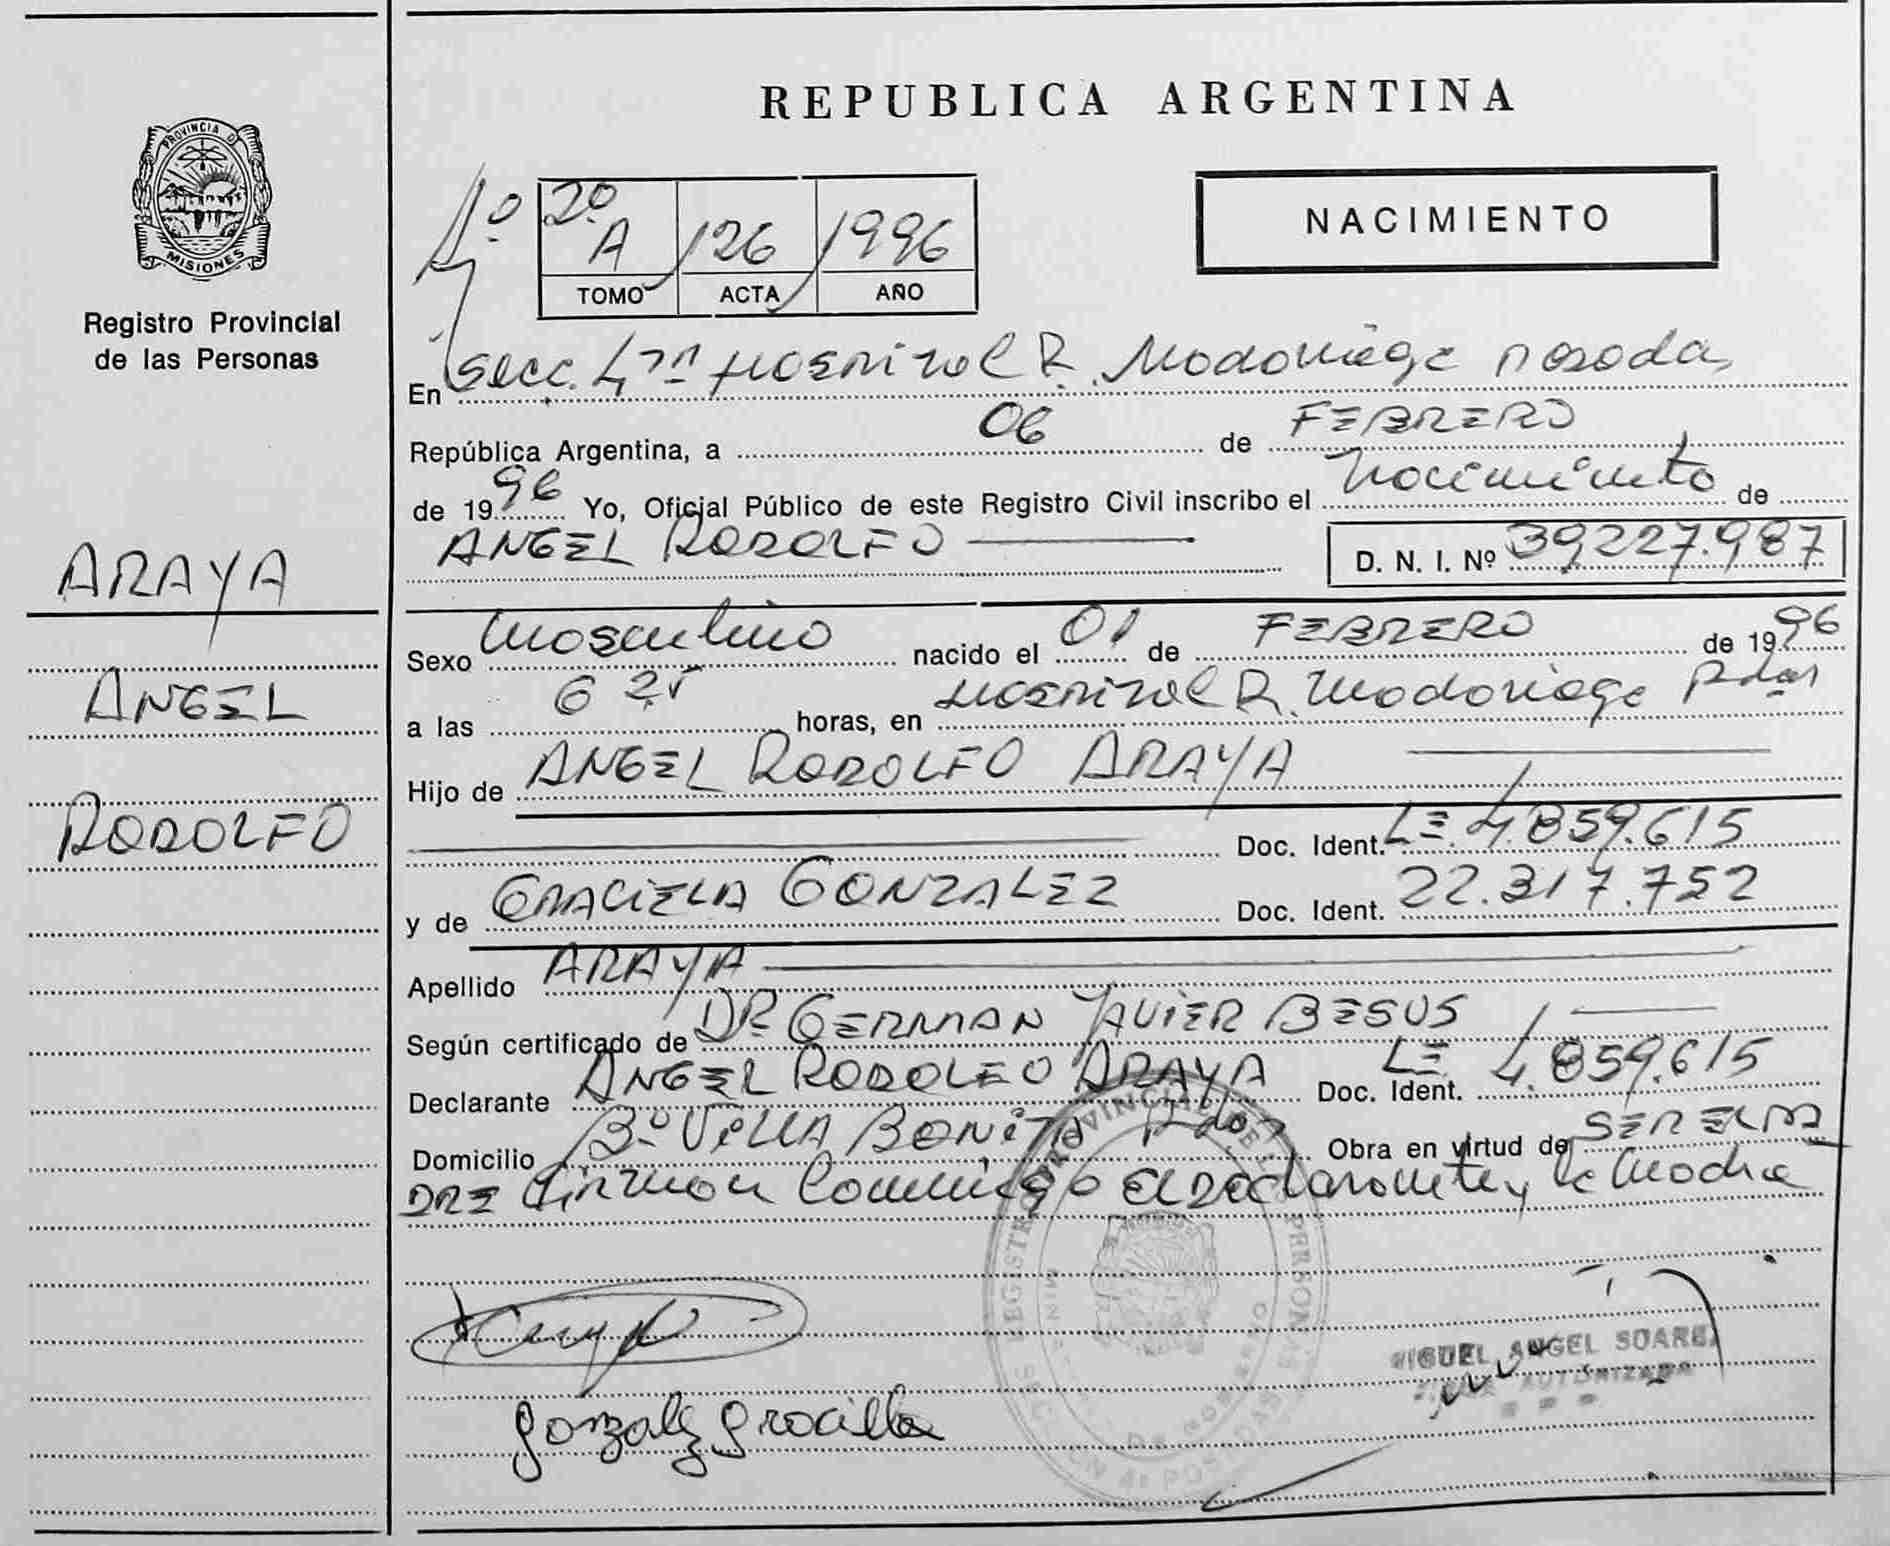 PROVINCIA DE
MISIONES
Registro Provincial
de las Personas
ARAYA
ANGEL
RODOLFO
REPUBLICA ARGENTINA
NACIMIENTO
2º A 126 1996
TOMO ACTA AÑO
En Secc. 4ta Hospital R. Madariaga Posadas
República Argentina, a 06 de FEBRERO
de 1996 Yo, Oficial Público de este Registro Civil inscribo el Nacimiento de
ANGEL RODOLFO D. N. I. Nº 39227.987
Sexo Masculino nacido el 01 de FEBRERO de 1996
a las 6 25 horas, en Hospital R. Madariaga Pdas
Hijo de ANGEL RODOLFO ARAYA
Doc. Ident. LE 4.859.615
y de GRACIELA GONZALEZ Doc. Ident. 22.317.752
Apellido ARAYA
Según certificado de DR. GERMAN JAVIER BESUS
Declarante ANGEL RODOLFO ARAYA Doc. Ident. LE 4.859.615
Domicilio Bº VILLA BONITA Pdas Obra en virtud de SER EL PA
DRE Firman Conmigo el Declarante y la Madre
Gonzalez Graciela
MIGUEL ANGEL SUAREZ
FIRMA AUTORIZADA
REGISTRO PROVINCIAL DE LAS PERSONAS
SECCION 4ª POSADAS